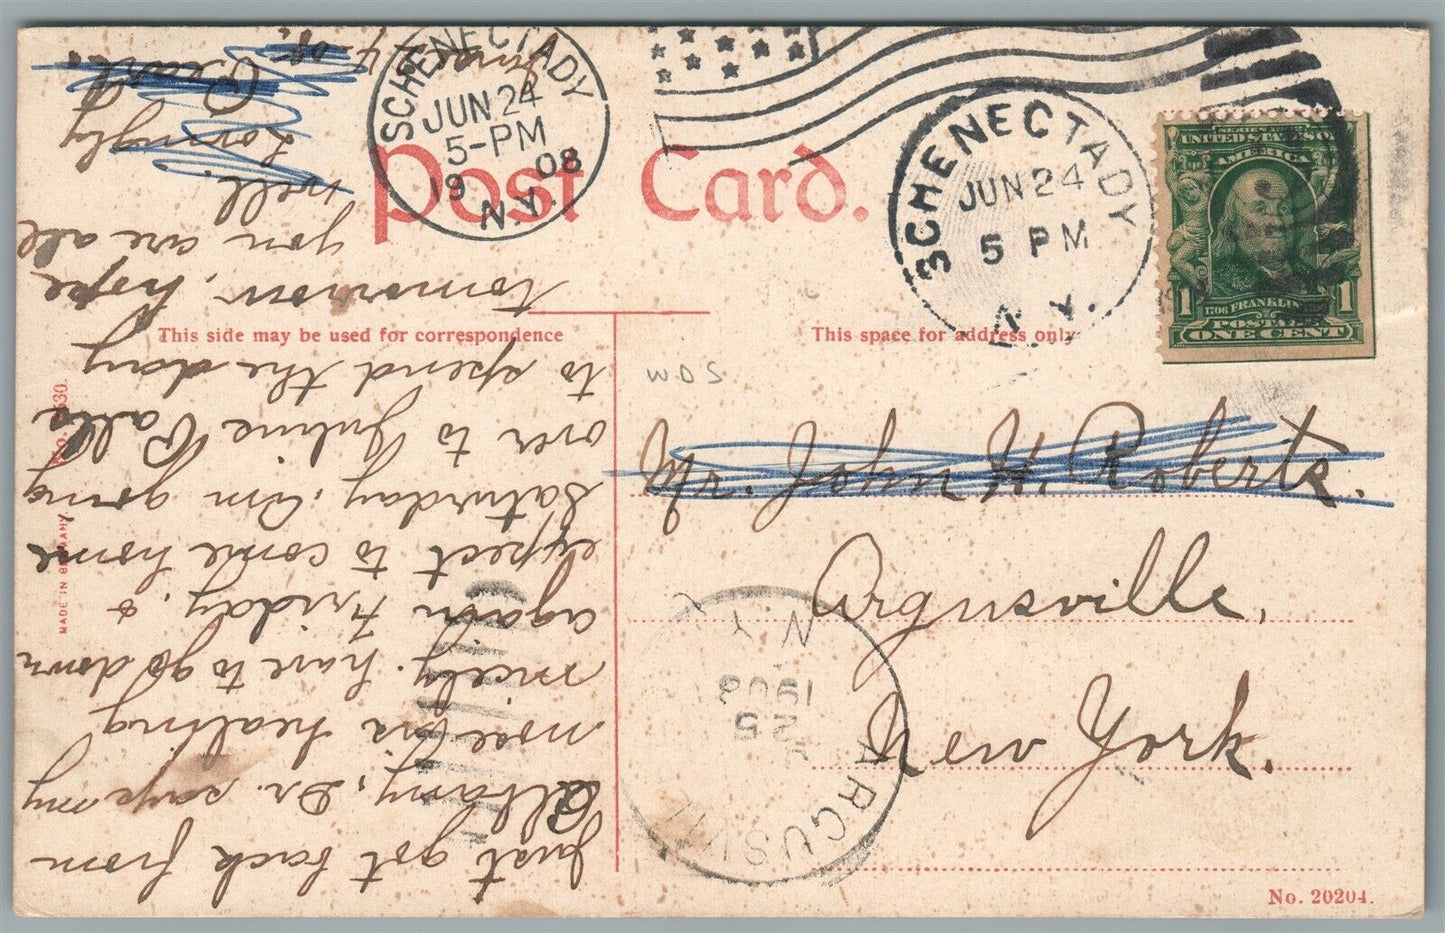 SCHENECTADY
JUN 24
5-PM
19 08
N.Y.
SCHENECTADY
JUN 24
5 PM
N.Y.
SERIES 1902
UNITED STATES OF
AMERICA
1706 FRANKLIN
POSTAGE
1 ONE CENT 1
Post Card.
This side may be used for correspondence
This space for address only
Mr. John H. Roberts.
Argusville,
New York.
ARGUSVIL
25
1908
N.Y.
No. 20204.
MADE IN
June 24
08.
Just got back from
Albany, Dr. says my
nose is healing
nicely. have to go down
again Friday. &
expect to come home
Saturday. Am going
over to
to spend the day
tomorrow, hope
you are all
well.
Lovingly
Pearl.